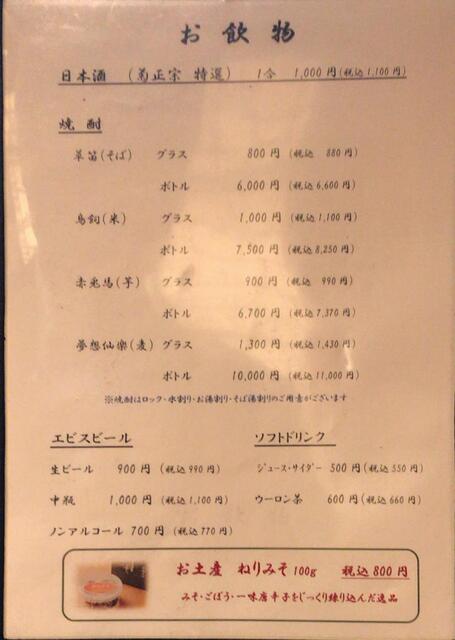 お飲物
日本酒 (菊正宗 特選) 1合 1,000円(税込1,100円)
焼酎
草笛(そば) グラス 800円 (税込 880円)
ボトル 6,000円 (税込6,600円)
鳥飼(米) グラス 1,000円 (税込1,100円)
ボトル 7,500円 (税込8,250円)
赤兎馬(芋) グラス 900円 (税込 990円)
ボトル 6,700円 (税込7,370円)
夢想仙楽(麦) グラス 1,300円 (税込1,430円)
ボトル 10,000円 (税込11,000円)
※焼酎はロック・水割り・お湯割り・そば湯割りのご用意がございます
エビスビール
生ビール 900円 (税込990円)
中瓶 1,000円 (税込1,100円)
ノンアルコール 700円 (税込770円)
ソフトドリンク
ジュース・サイダー 500円(税込550円)
ウーロン茶 600円(税込660円)
お土産 ねりみそ100g 税込800円
みそ・ごぼう・一味唐辛子をじっくり練り込んだ逸品